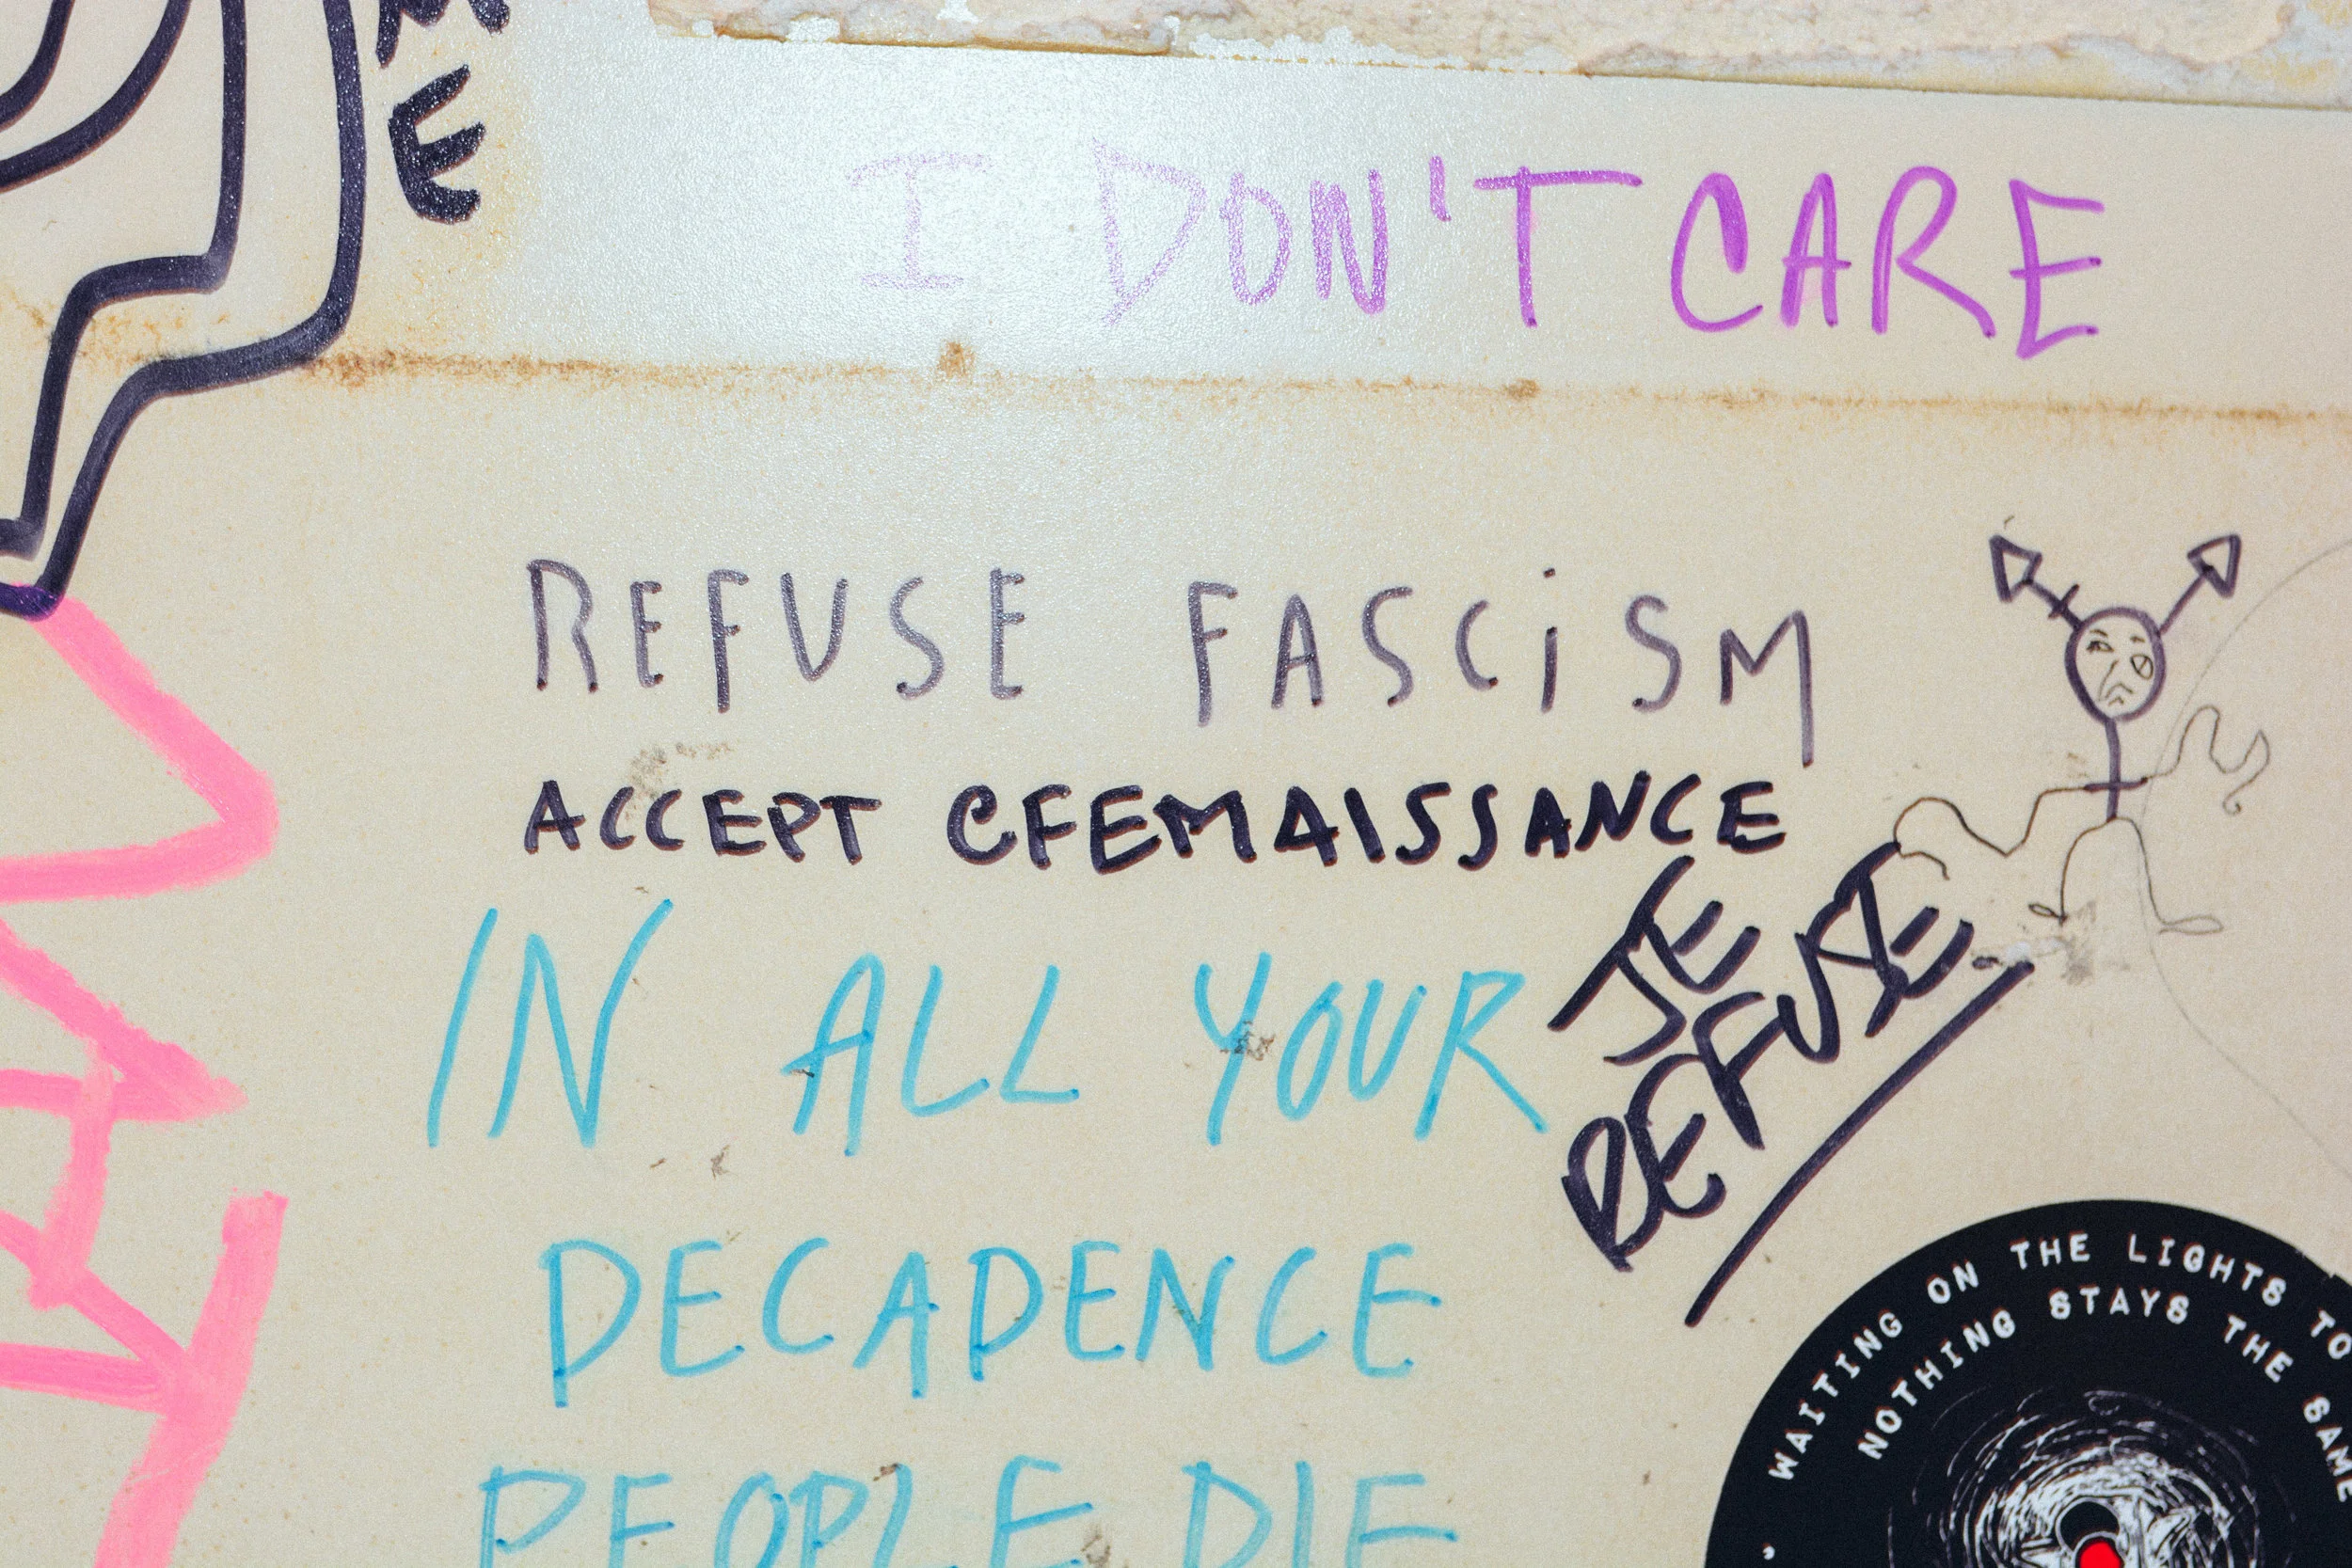 ME
I DON'T CARE
REFUSE FASCiSM
ACCEPT CFEMAISSANCE
JE
REFUSE
IN ALL YOUR
DECADENCE
PEOPLE DIE
WAITING ON THE LIGHTS TO
NOTHING STAYS THE SAME